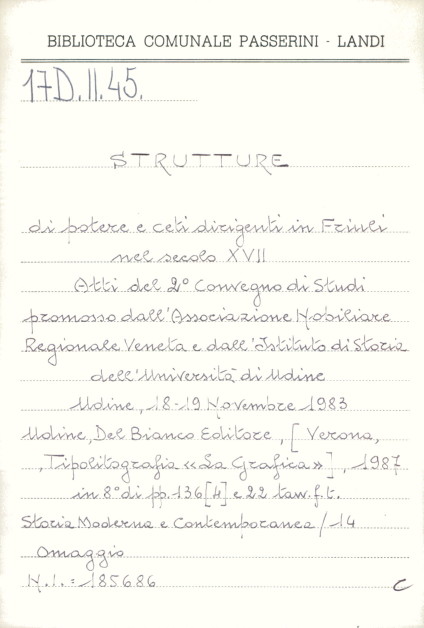 BIBLIOTECA COMUNALE PASSERINI - LANDI
17D.II.45.
STRUTTURE
di potere e ceti dirigenti in Friuli
nel secolo XVII
Atti del 2° Convegno di Studi
promosso dall'Associazione Nobiliare
Regionale Veneta e dall'Istituto di Storia
dell'Università di Udine
Udine, 18-19 Novembre 1983
Udine, Del Bianco Editore, [Verona,
Tipolitografia «La Grafica»], 1987
in 8° di pp. 136[4] e 22 tav. f. t.
Storia Moderna e Contemporanea / 14
Omaggio
N.I. = 185686
C